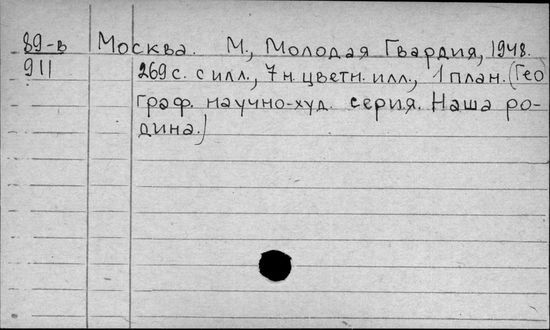 89-в Москва. М., Молодая Гвардия, 1948.
911 269 с. с илл., 7 н. цветн. илл., 1 план. (Гео
граф. научно-худ. серия. Наша ро-
дина.)